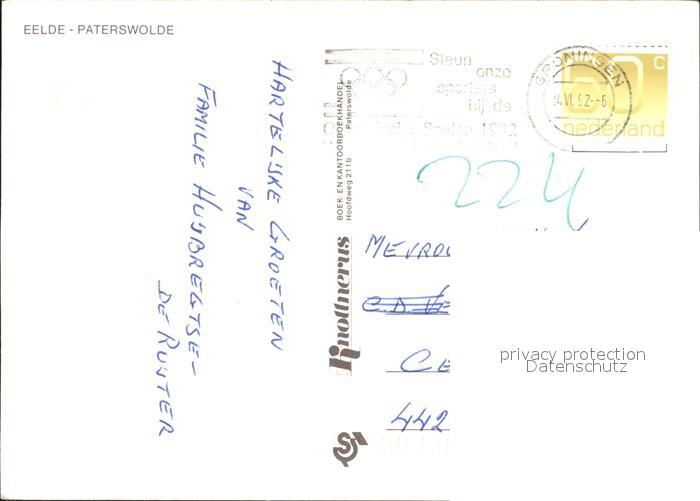 EELDE - PATERSWOLDE
HARTELIJKE GROETEN
VAN
FAMILIE HUIJBREGTSE-
DE RUIJTER
BOEK- EN KANTOORBOEKHANDEL
Hoofdweg 211b Paterswolde
Knollnerus
Steun
onze
sporters
bij de
Spelen 1992
GRONINGEN
60 c
nederland
224
MEVROU
C.D. VE
CE
442
privacy protection
Datenschutz